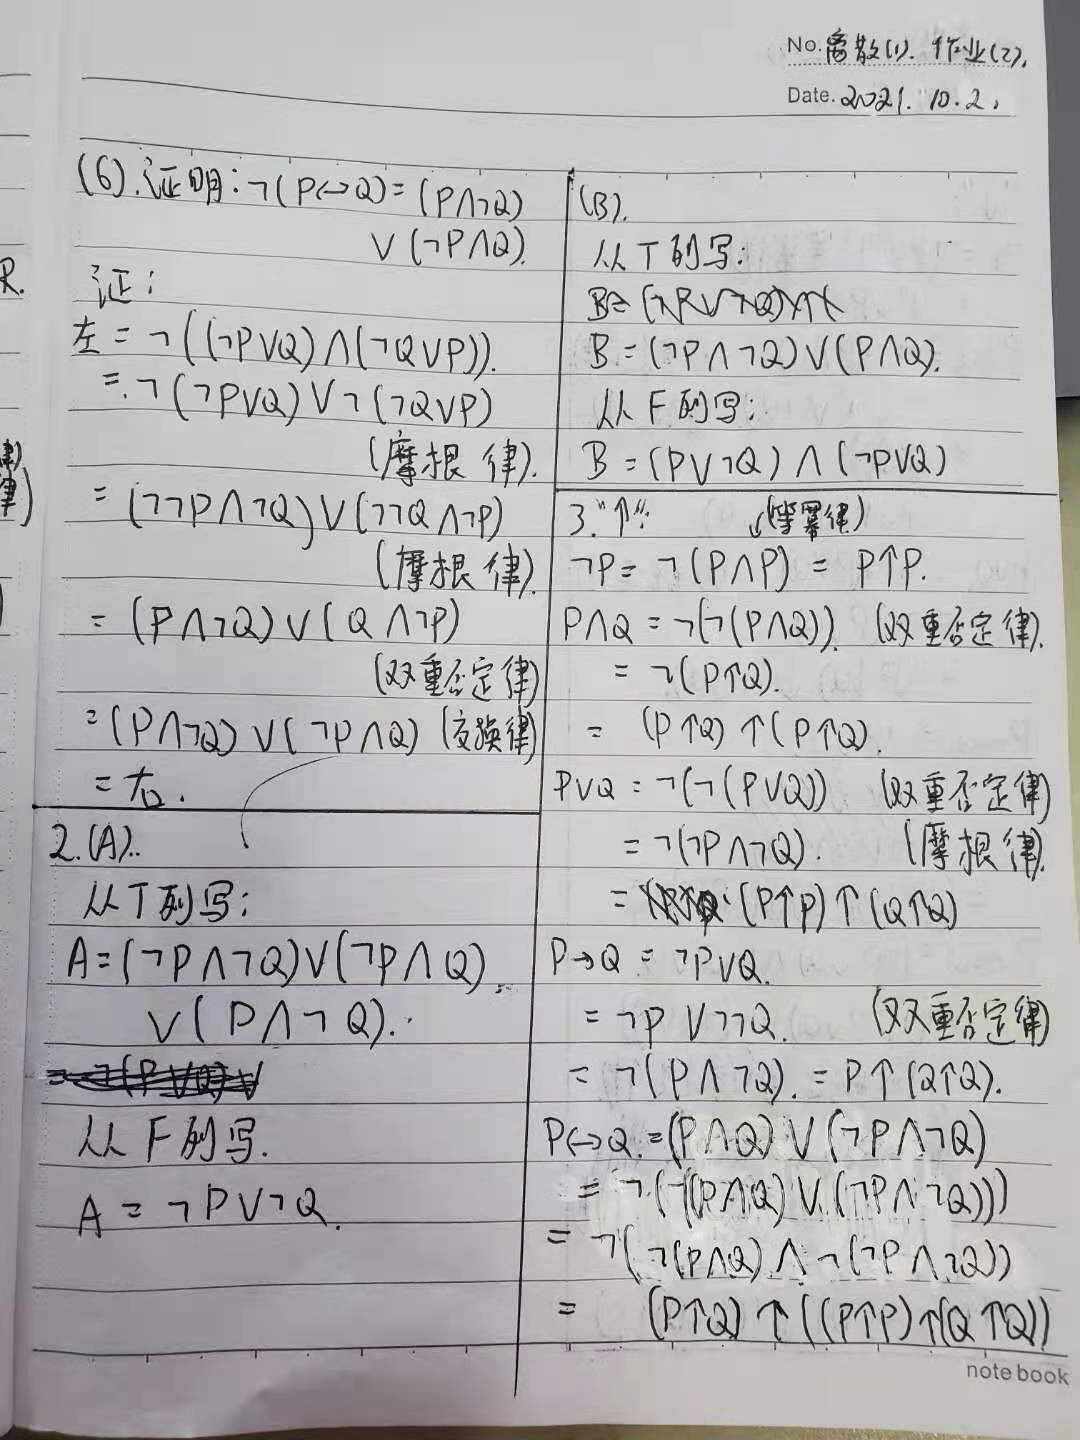 No. 离散(1). 作业(2).
Date. 2021. 10. 2.
(6). 证明: ¬(P↔Q) = (P∧¬Q)
∨(¬P∧Q).
证:
左 = ¬((¬P∨Q)∧(¬Q∨P)).
= ¬(¬P∨Q)∨¬(¬Q∨P)
(摩根律).
= (¬¬P∧¬Q)∨(¬¬Q∧¬P)
(摩根律).
= (P∧¬Q)∨(Q∧¬P)
(双重否定律)
= (P∧¬Q)∨(¬P∧Q) (交换律)
= 右.
2.(A).
从T列写:
A = (¬P∧¬Q)∨(¬P∧Q)
∨(P∧¬Q).
从F列写.
A = ¬P∨¬Q.
(B).
从T列写:
B = (¬P∧¬Q)∨(P∧Q).
从F列写:
B = (P∨¬Q)∧(¬P∨Q)
3."↑": (等幂律)
¬P = ¬(P∧P) = P↑P.
P∧Q = ¬(¬(P∧Q)). (双重否定律).
= ¬(P↑Q).
= (P↑Q)↑(P↑Q).
P∨Q = ¬(¬(P∨Q)) (双重否定律)
= ¬(¬P∧¬Q). (摩根律).
= (P↑P)↑(Q↑Q)
P→Q = ¬P∨Q.
= ¬P∨¬¬Q. (双重否定律)
= ¬(P∧¬Q). = P↑(Q↑Q).
P↔Q = (P∧Q)∨(¬P∧¬Q)
= ¬(¬((P∧Q)∨(¬P∧¬Q)))
= ¬(¬(P∧Q)∧¬(¬P∧¬Q))
= (P↑Q)↑((P↑P)↑(Q↑Q))
note book
R.
律)
律)